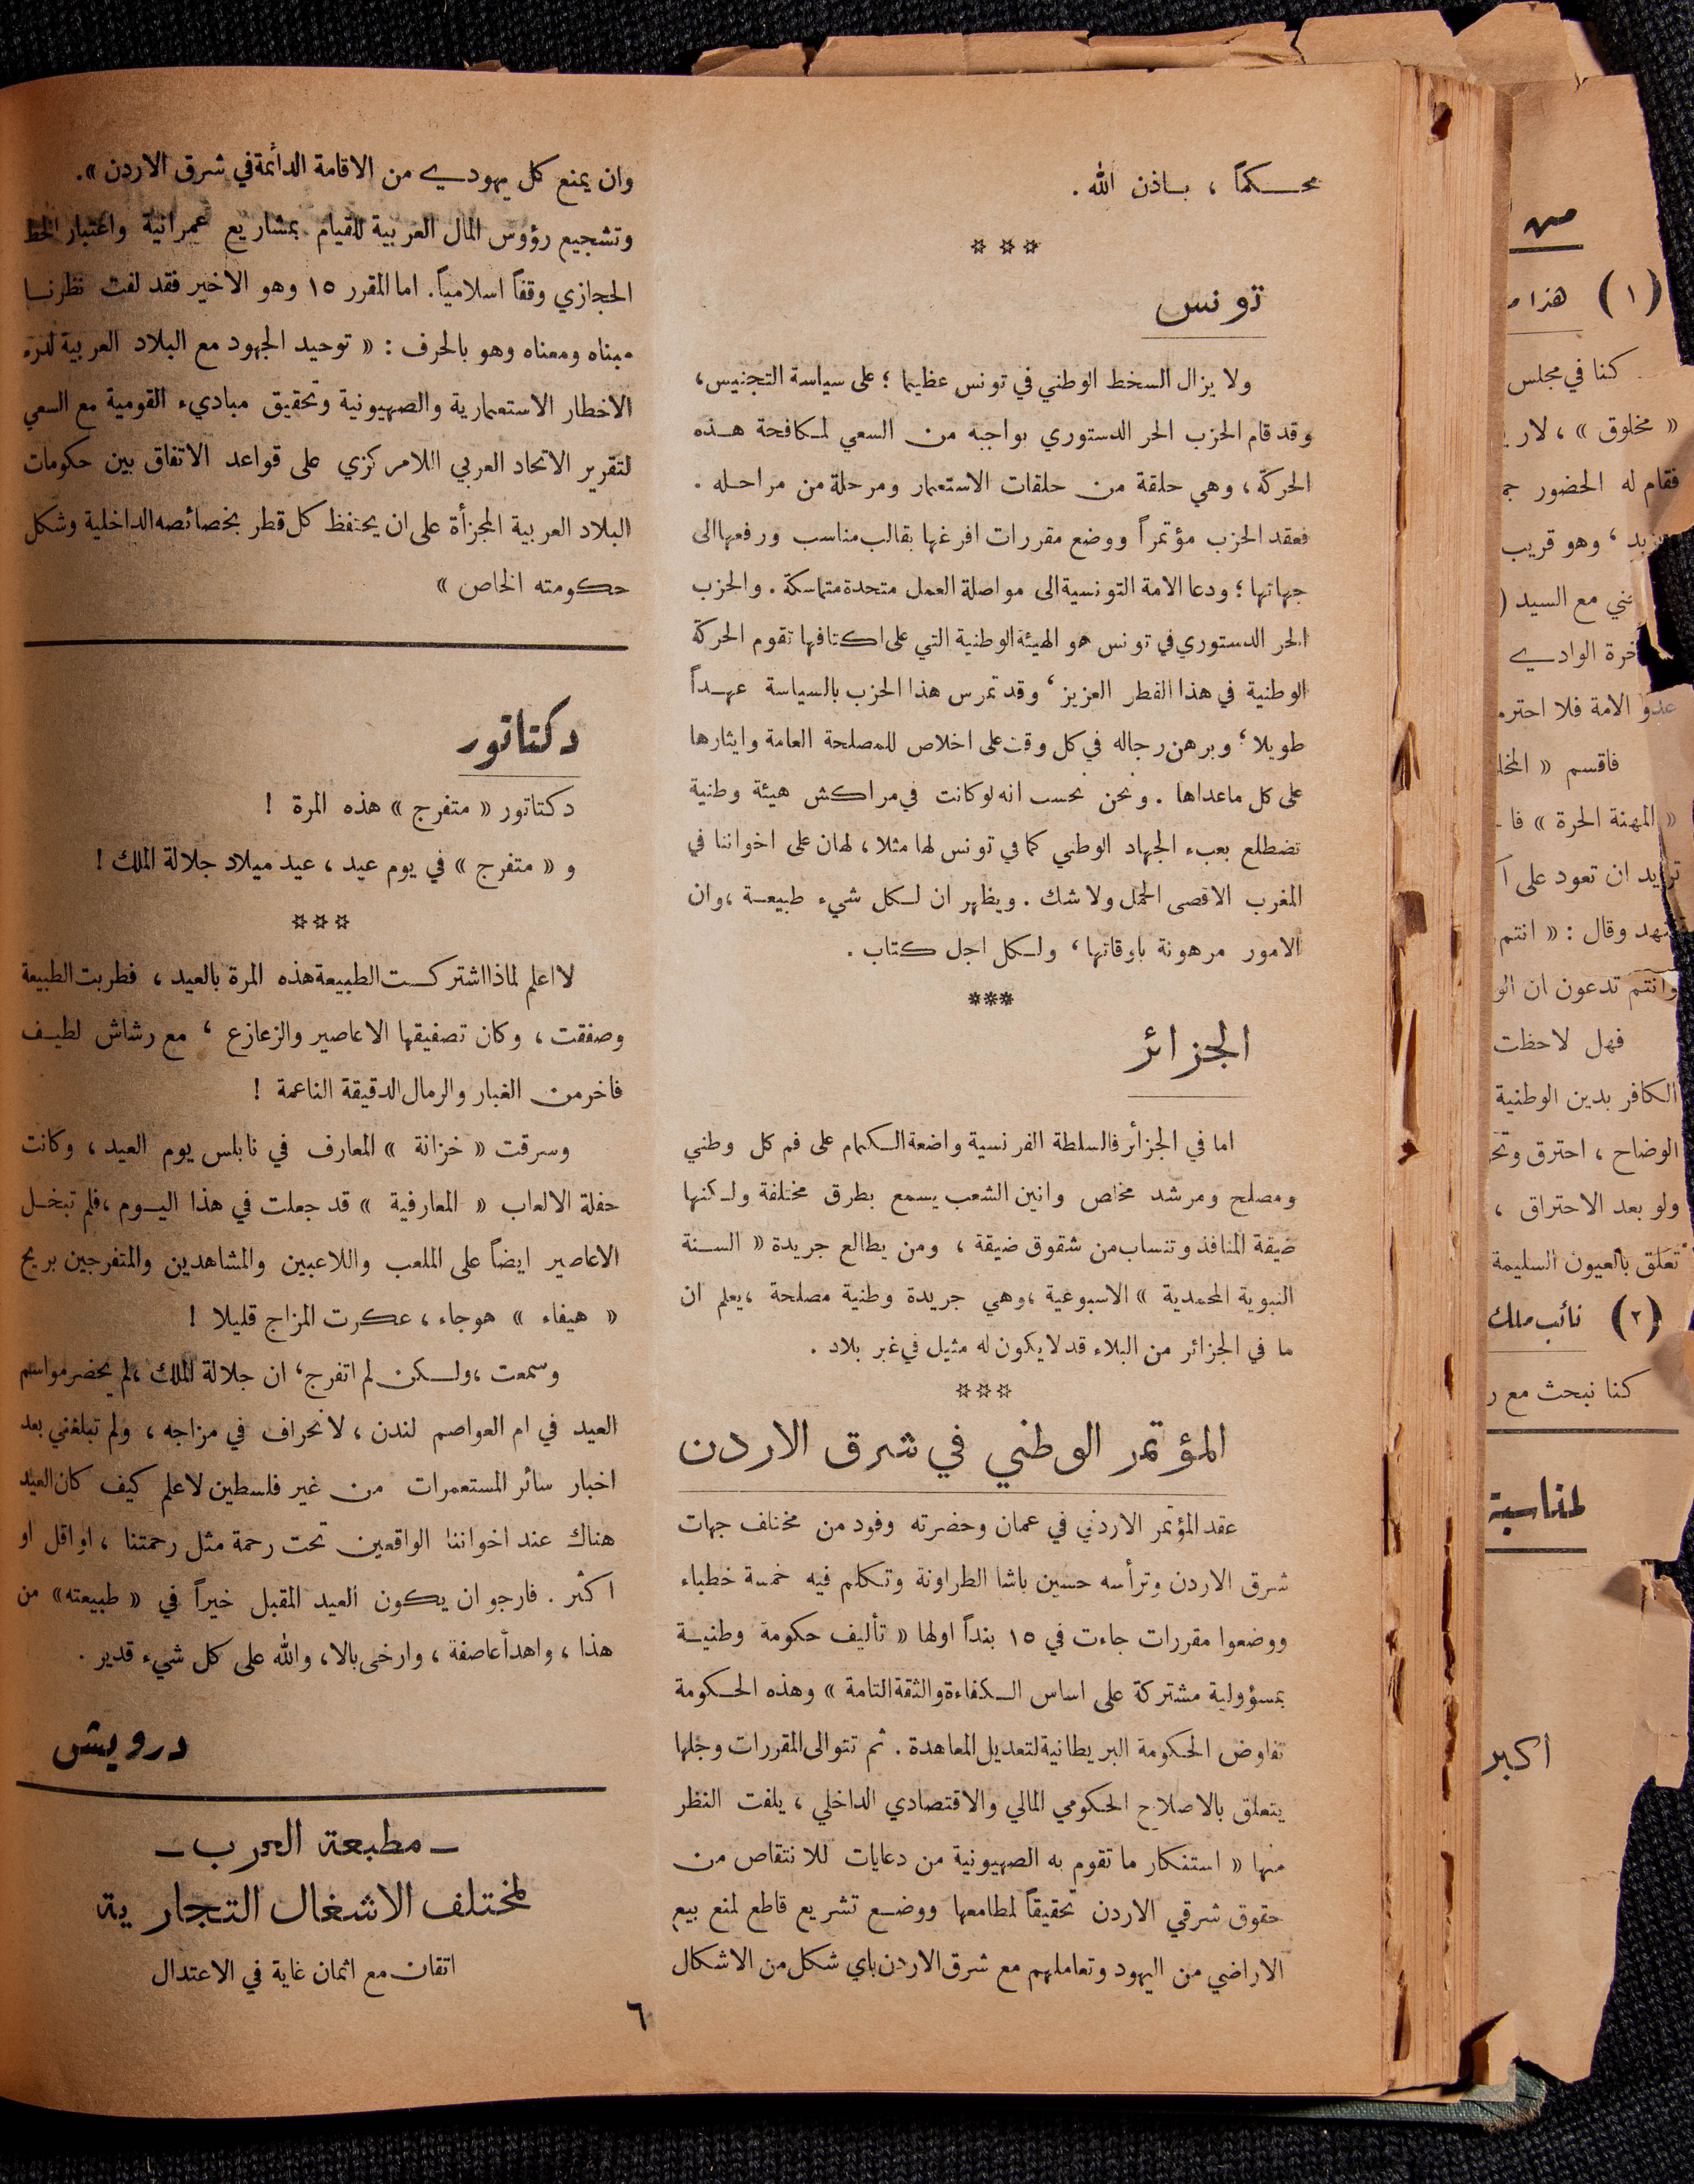 محكماً ، باذن الله .
☆ ☆ ☆
تونس
ولا يزال السخط الوطني في تونس عظيما ؛ على سياسة التجنيس ،
وقد قام الحزب الحر الدستوري بواجبه من السعي لمكافحة هذه
الحركة ، وهي حلقة من حلقات الاستعمار ومرحلة من مراحله .
فعقد الحزب مؤتمراً ووضع مقررات افرغها بقالب مناسب ورفعها الى
جهاتها ؛ ودعا الامة التونسية الى مواصلة العمل متحدة متماسكة . والحزب
الحر الدستوري في تونس هو الهيئة الوطنية التي على اكتافها تقوم الحركة
الوطنية في هذا القطر العزيز ، وقد تمرس هذا الحزب بالسياسة عهداً
طويلا ؛ وبرهن رجاله في كل وقت على اخلاص للمصلحة العامة وايثارها
على كل ماعداها . ونحن نحسب انه لو كانت في مراكش هيئة وطنية
تضطلع بعبء الجهاد الوطني كما في تونس لها مثلا ، لهان على اخواننا في
المغرب الاقصى الحمل ولا شك . ويظهر ان لكل شيء طبيعة ، وان
الامور مرهونة باوقاتها ، ولكل اجل كتاب .
***
الجزائر
اما في الجزائر فالسلطة الفرنسية واضعة الكمام على فم كل وطني
ومصلح ومرشد مخلص وانين الشعب يسمع بطرق مختلفة ولكنها
ضيقة المنافذ وتنساب من شقوق ضيقة ، ومن يطالع جريدة « السنة
النبوية المحمدية » الاسبوعية ، وهي جريدة وطنية مصلحة ، يعلم ان
ما في الجزائر من البلاء قد لا يكون له مثيل في غير بلاد .
☆☆☆
المؤتمر الوطني في شرق الاردن
عقد المؤتمر الاردني في عمان وحضرته وفود من مختلف جهات
شرق الاردن وترأسه حسين باشا الطراونة وتكلم فيه خمسة خطباء
ووضعوا مقررات جاءت في ١٥ بنداً اولها « تأليف حكومة وطنية
بمسؤولية مشتركة على اساس الكفاءة والثقة التامة » وهذه الحكومة
تفاوض الحكومة البريطانية لتعديل المعاهدة . ثم تتوالى المقررات وجلها
يتعلق بالاصلاح الحكومي المالي والاقتصادي الداخلي ، يلفت النظر
منها « استنكار ما تقوم به الصهيونية من دعايات للانتقاص من
حقوق شرقي الاردن تحقيقاً لمطامعها ووضع تشريع قاطع لمنع بيع
الاراضي من اليهود وتعاملهم مع شرق الاردن باي شكل من الاشكال
وان يمنع كل يهودي من الاقامة الدائمة في شرق الاردن ».
وتشجيع رؤوس المال العربية للقيام بمشاريع عمرانية واعتبار الخط
الحجازي وقفاً اسلامياً. اما المقرر ١٥ وهو الاخير فقد لفت نظرنا
مبناه ومعناه وهو بالحرف : « توحيد الجهود مع البلاد العربية لدرء
الاخطار الاستعمارية والصهيونية وتحقيق مباديء القومية مع السعي
لتقرير الاتحاد العربي اللامركزي على قواعد الاتفاق بين حكومات
البلاد العربية المجزأة على ان يحتفظ كل قطر بخصائصه الداخلية وشكل
حكومته الخاص »
دكتاتور
دكتاتور « متفرج » هذه المرة !
و « متفرج » في يوم عيد ، عيد ميلاد جلالة الملك !
☆☆☆
لا اعلم لماذا اشتركت الطبيعة هذه المرة بالعيد ، فطربت الطبيعة
وصفقت ، وكان تصفيقها الاعاصير والزعازع ، مع رشاش لطيف
فاخر من الغبار والرمال الدقيقة الناعمة !
وسرقت « خزانة » المعارف في نابلس يوم العيد ، وكانت
حفلة الالعاب « المعارفية » قد جعلت في هذا اليوم ، فلم تبخل
الاعاصير ايضاً على الملعب واللاعبين والمشاهدين والمتفرجين بريح
« هيفاء » هوجاء ، عكرت المزاج قليلا !
وسمعت ، ولكن لم اتفرج ، ان جلالة الملك ، لم يحضر مواسم
العيد في ام العواصم لندن ، لانحراف في مزاجه ، ولم تبلغني بعد
اخبار سائر المستعمرات من غير فلسطين لاعلم كيف كان العيد
هناك عند اخواننا الواقعين تحت رحمة مثل رحمتنا ، او اقل او
اكثر . فارجو ان يكون العيد المقبل خيراً في « طبيعته » من
هذا ، واهدأ عاصفة ، وارخى بالا ، والله على كل شيء قدير .
درويش
ـ مطبعة العرب ـ
لمختلف الاشغال التجارية
اتقان مع اثمان غاية في الاعتدال
٦
(١) هذا
كنا في مجلس
« مخلوق » ،
فقام له الحضور
، وهو قريب
مع السيد (
الوادي
عدو الامة فلا
فاقسم «
« المهنة الحرة »
تريد ان تعود على
وقال : « انتم
وانتم تدعون ان
فهل لاحظت
الكافر بدين الوطنية
الوضاح ، احترق
ولو بعد الاحتراق ،
تعلق بالعيون السليمة
(٢) نائب ملك
كنا نبحث مع
لمناسبة
اكبر